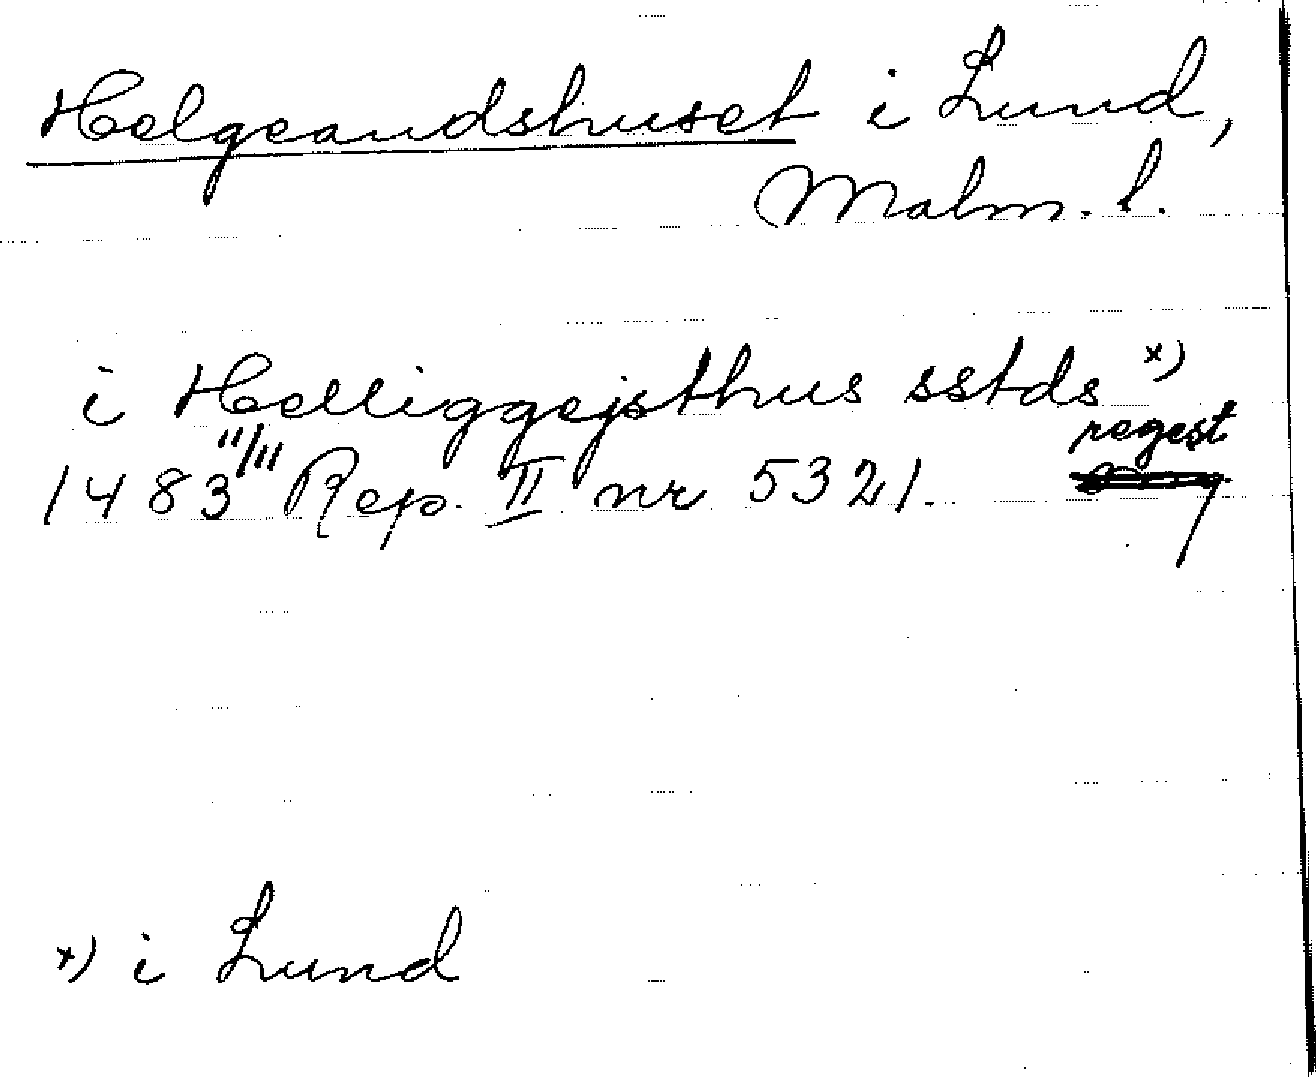 Helgeandshuset i Lund,
Malm. l.
i Helliggejsthus sstds x)
regest
1483 11/11 Rep. II nr 5321.
x) i Lund